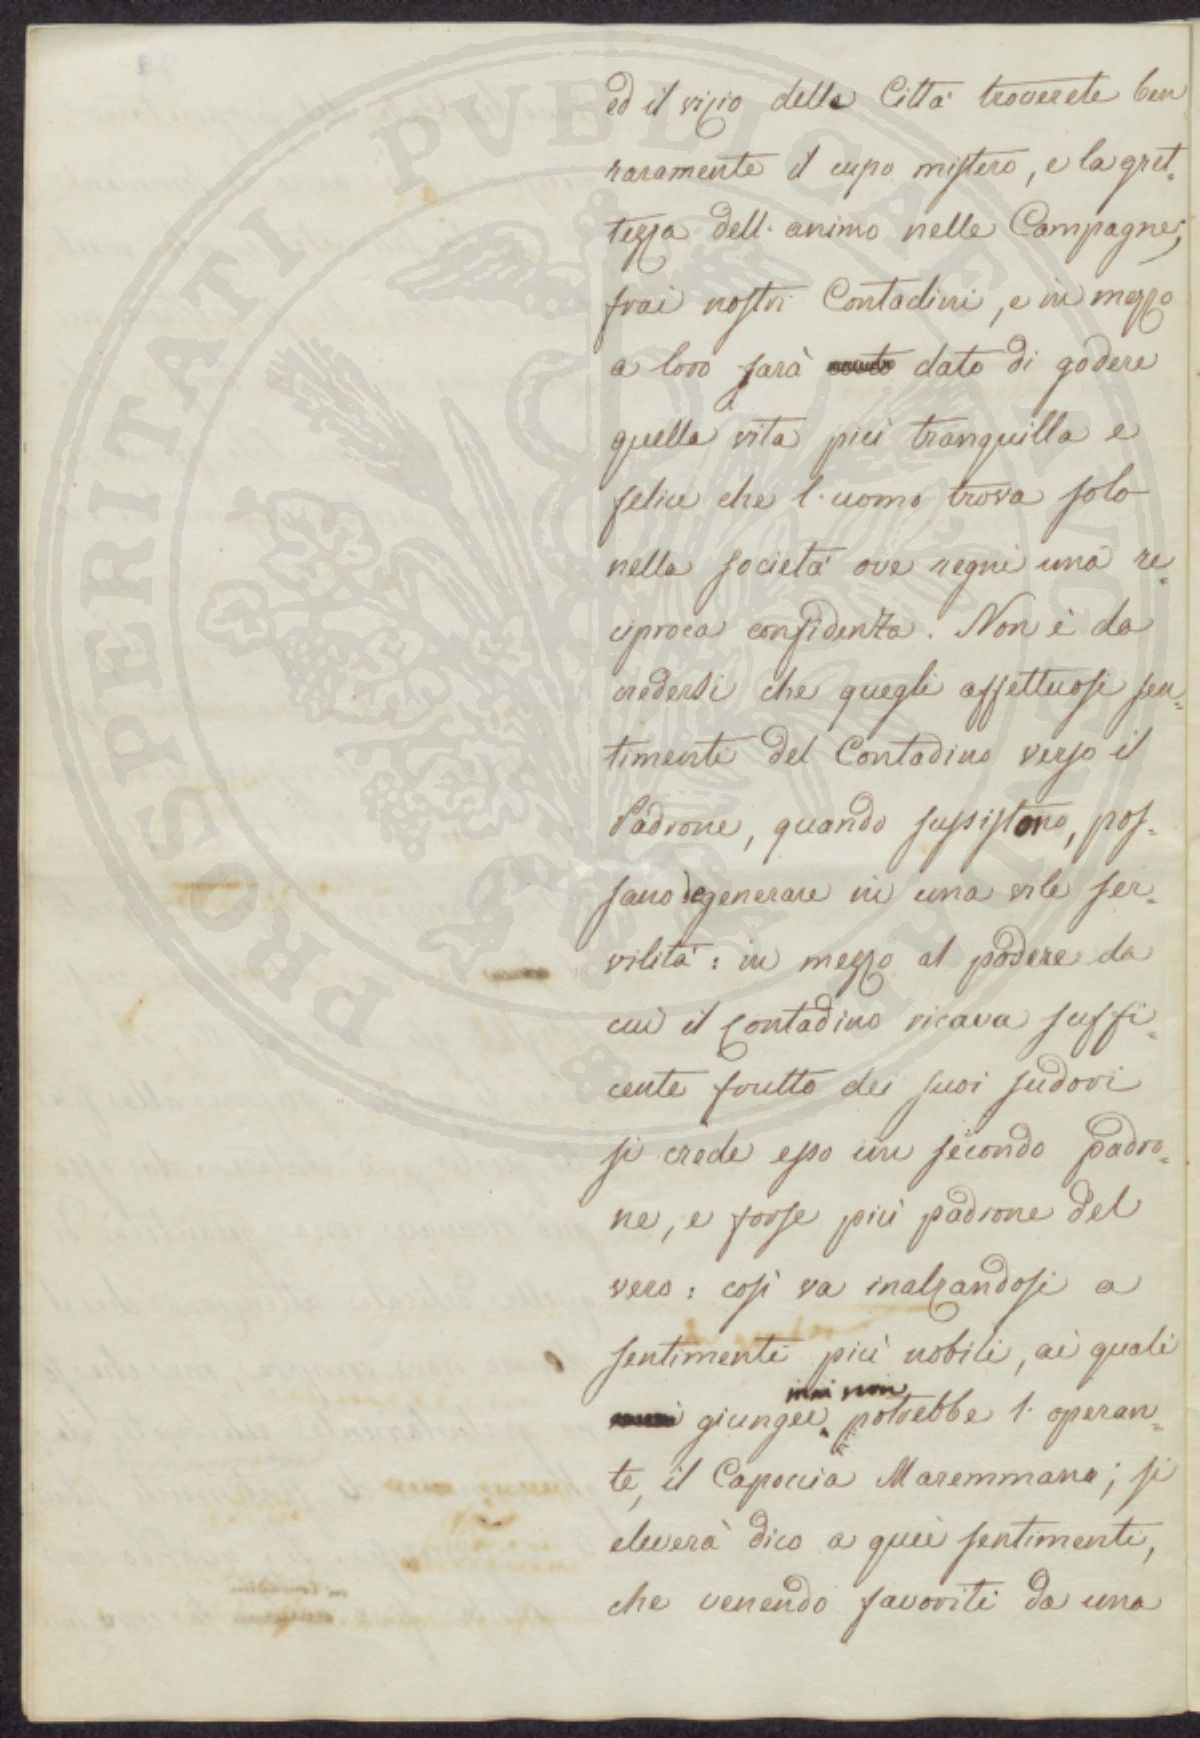 ed il vizio delle Città troverete ben
raramente il cupo mistero, e la gret=
tezza dell'animo nelle Campagne;
frai nostri Contadini, e in mezzo
a loro sarà dato di godere
quella vita più tranquilla e
felice che l'uomo trova solo
nella società ove regni una re=
ciproca confidenza. Non è da
credersi che quegli affettuosi sen=
timenti del Contadino verso il
Padrone, quando sussistono, pos=
sano degenerare in una vile ser=
vilità: in mezzo al podere da
cui il Contadino ricava suffi=
cente frutto dei suoi sudori
si crede esso un secondo padro=
ne, e forse più padrone del
vero: così va inalzandosi a
sentimenti più nobili, ai quali
mai non
giungere potrebbe l'operan=
te, il Capoccia Maremmano; si
eleverà dico a quei sentimenti,
che venendo favoriti da una
PROSPERITATI PUBLICAE